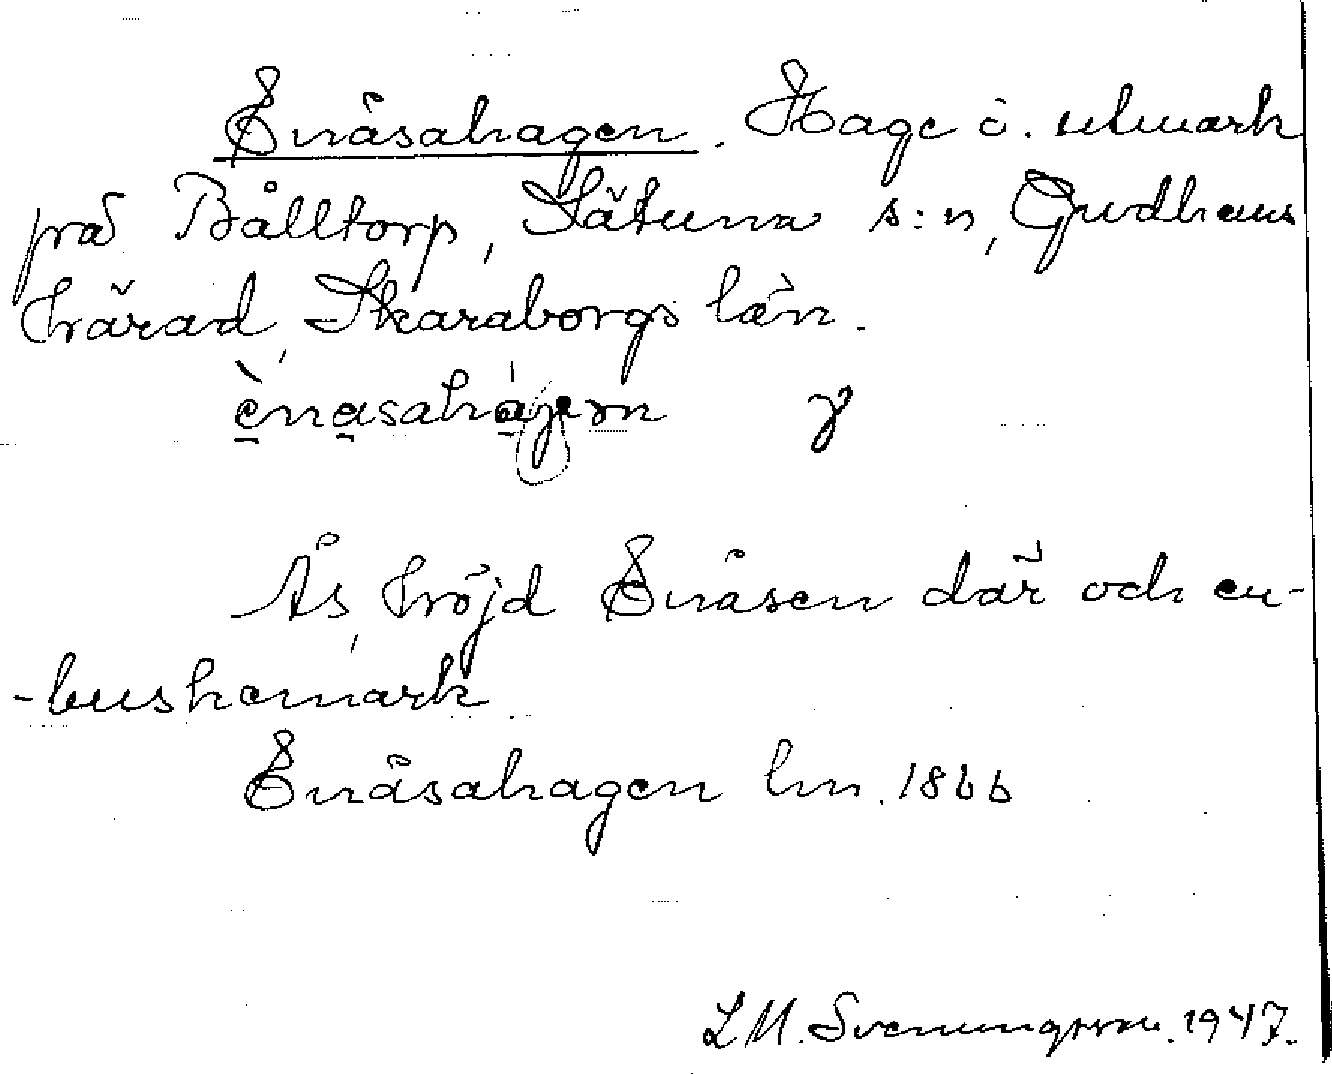 Enåsahagen. Hage i. utmark
på Bålltorp, Sätuna s:n, Gudhems
härad, Skaraborgs län.
ènasaháɡen γ
Ås, höjd Enåsen där och en-
-buskemark
Enåsahagen hm. 1866
L M. Svenungsson. 1947.